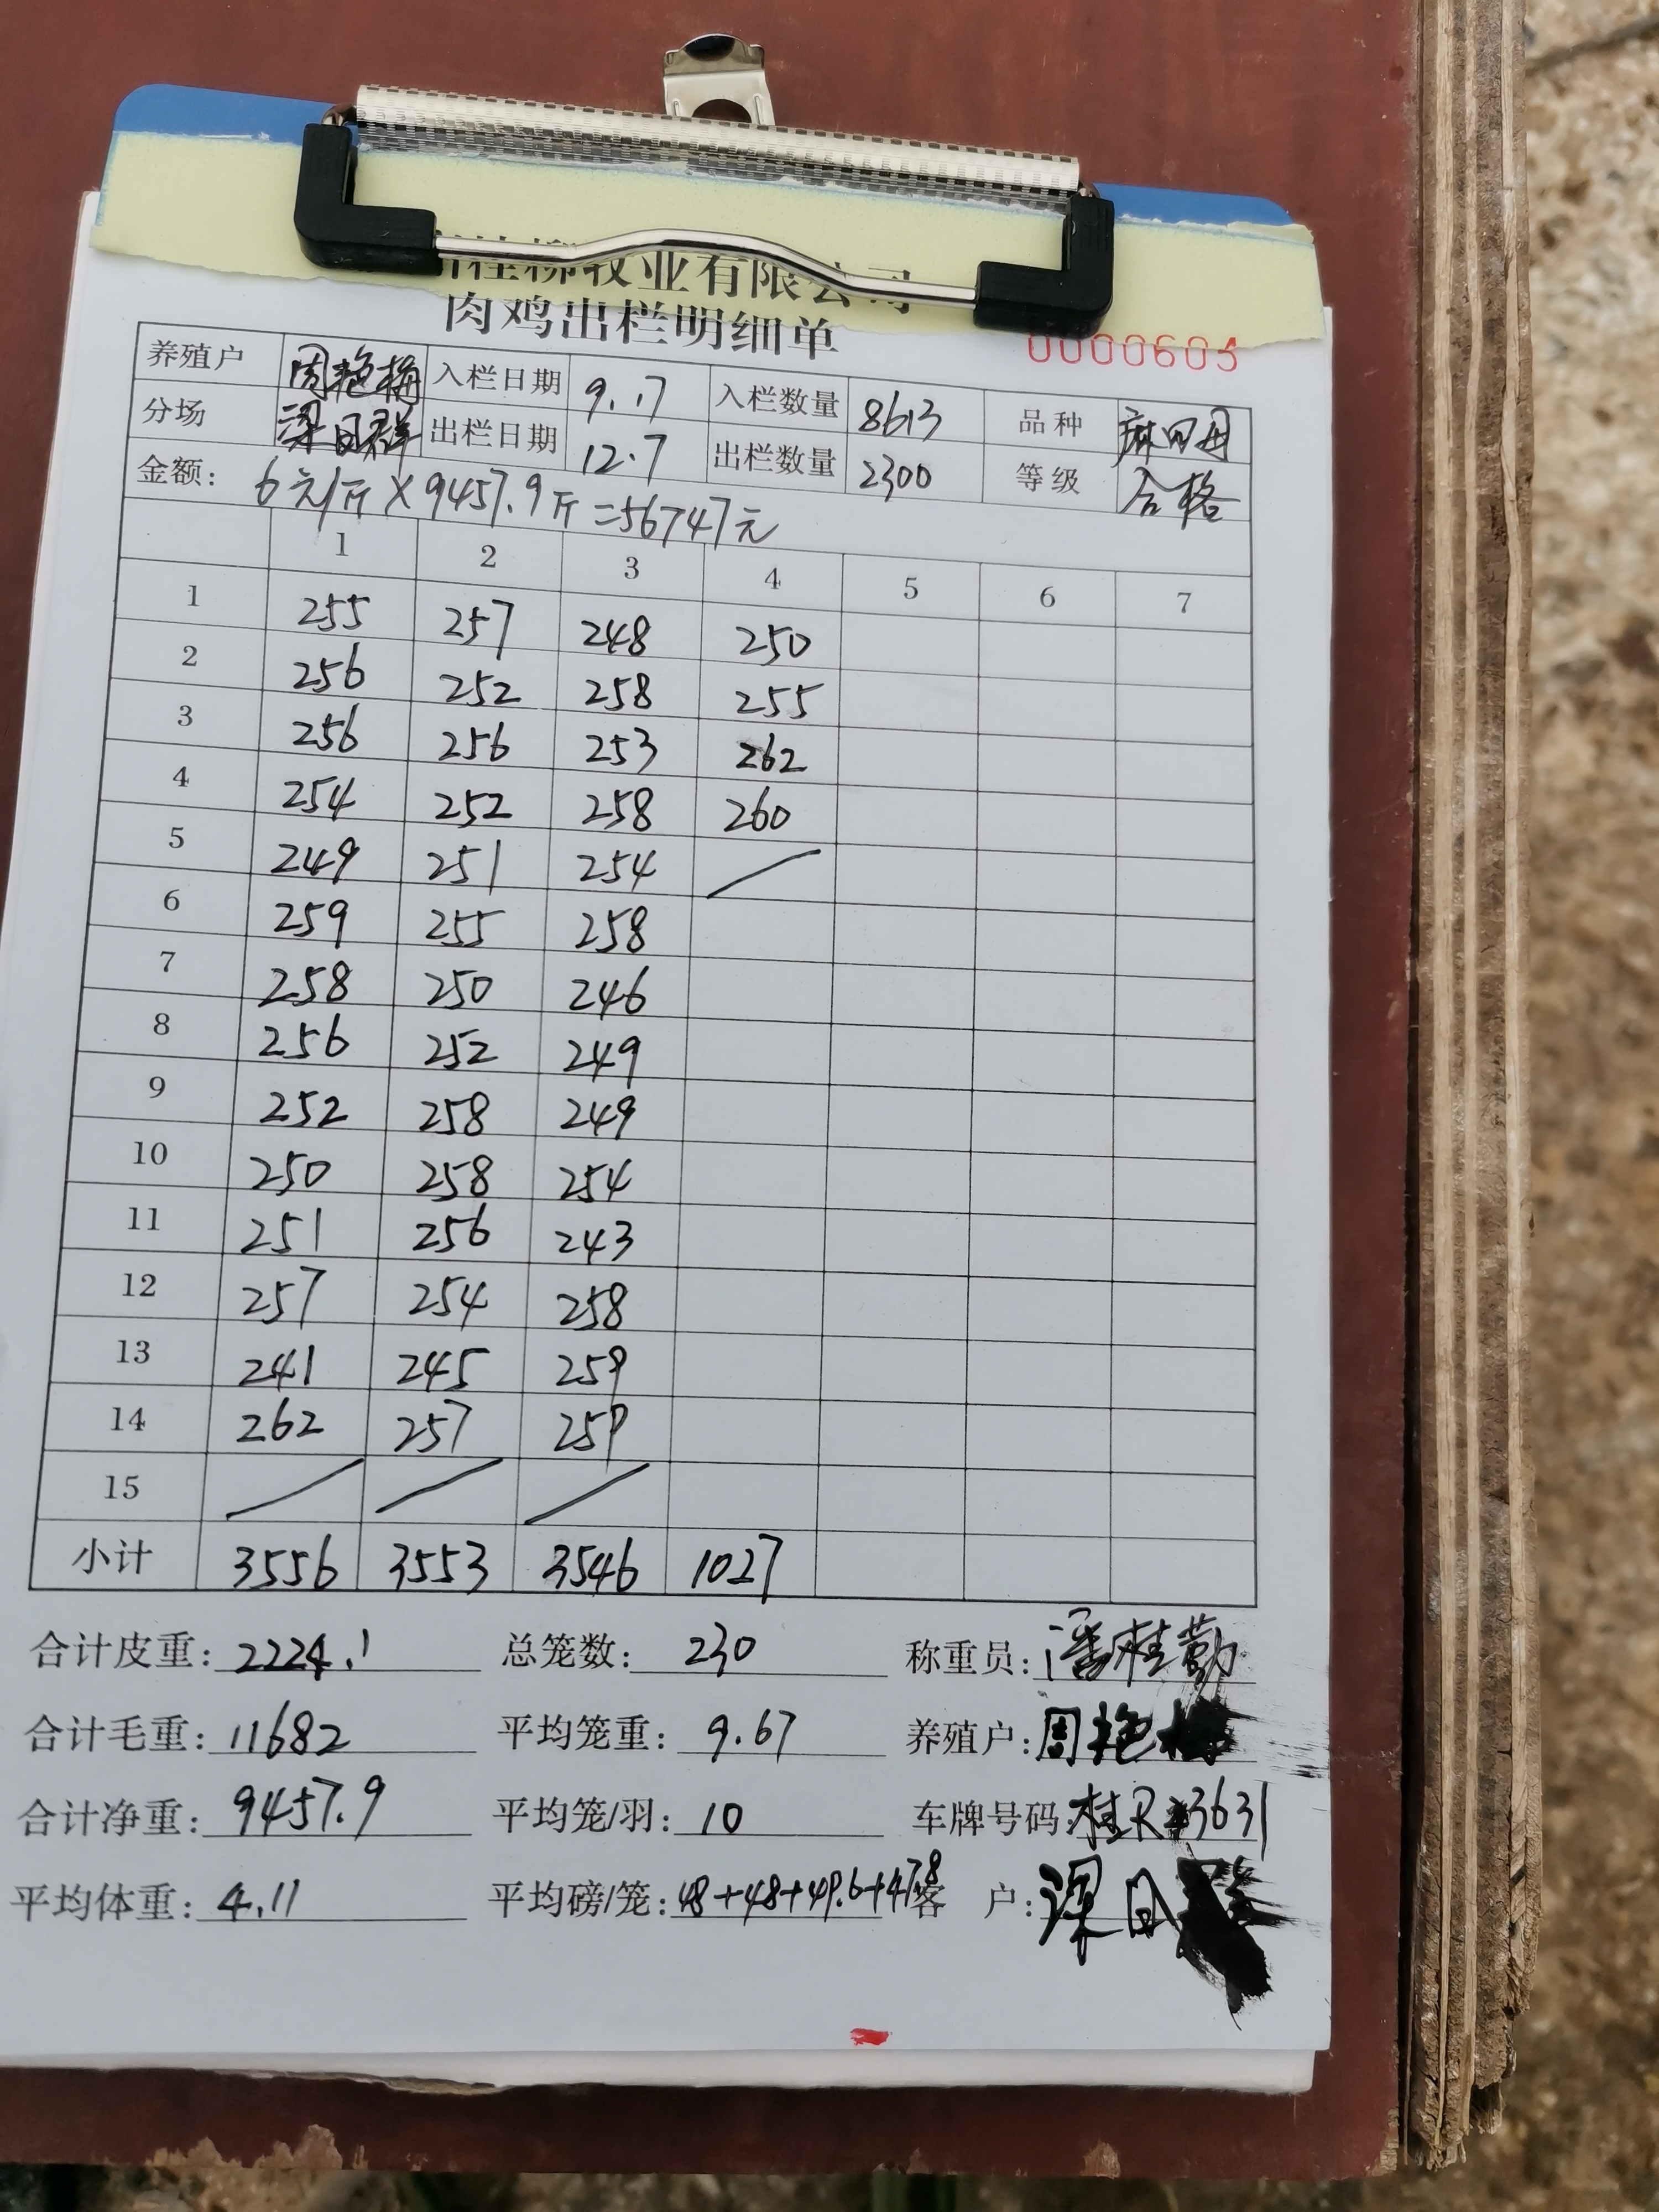 桂柳牧业有限公司
肉鸡出栏明细单
0000605
养殖户 周艳梅 入栏日期 9.17 入栏数量 8613 品种
分场 梁日群 出栏日期 12.7 出栏数量 2300 等级 合格
金额: 6元/斤×9457.9斤=56747元
1 2 3 4 5 6 7
1 255 257 248 250
2 256 252 258 255
3 256 256 253 262
4 254 252 258 260
5 249 251 254
6 259 255 258
7 258 250 246
8 256 252 249
9 252 258 249
10 250 258 254
11 251 256 243
12 257 254 258
13 241 245 259
14 262 257 259
15
小计 3556 3553 3546 1027
合计皮重: 2224.1 总笼数: 230 称重员: 潘桂勤
合计毛重: 11682 平均笼重: 9.67 养殖户: 周艳梅
合计净重: 9457.9 平均笼/羽: 10 车牌号码: 桂R 3631
平均体重: 4.11 平均磅/笼: 48+48+49.6+47.8 客户: 梁日